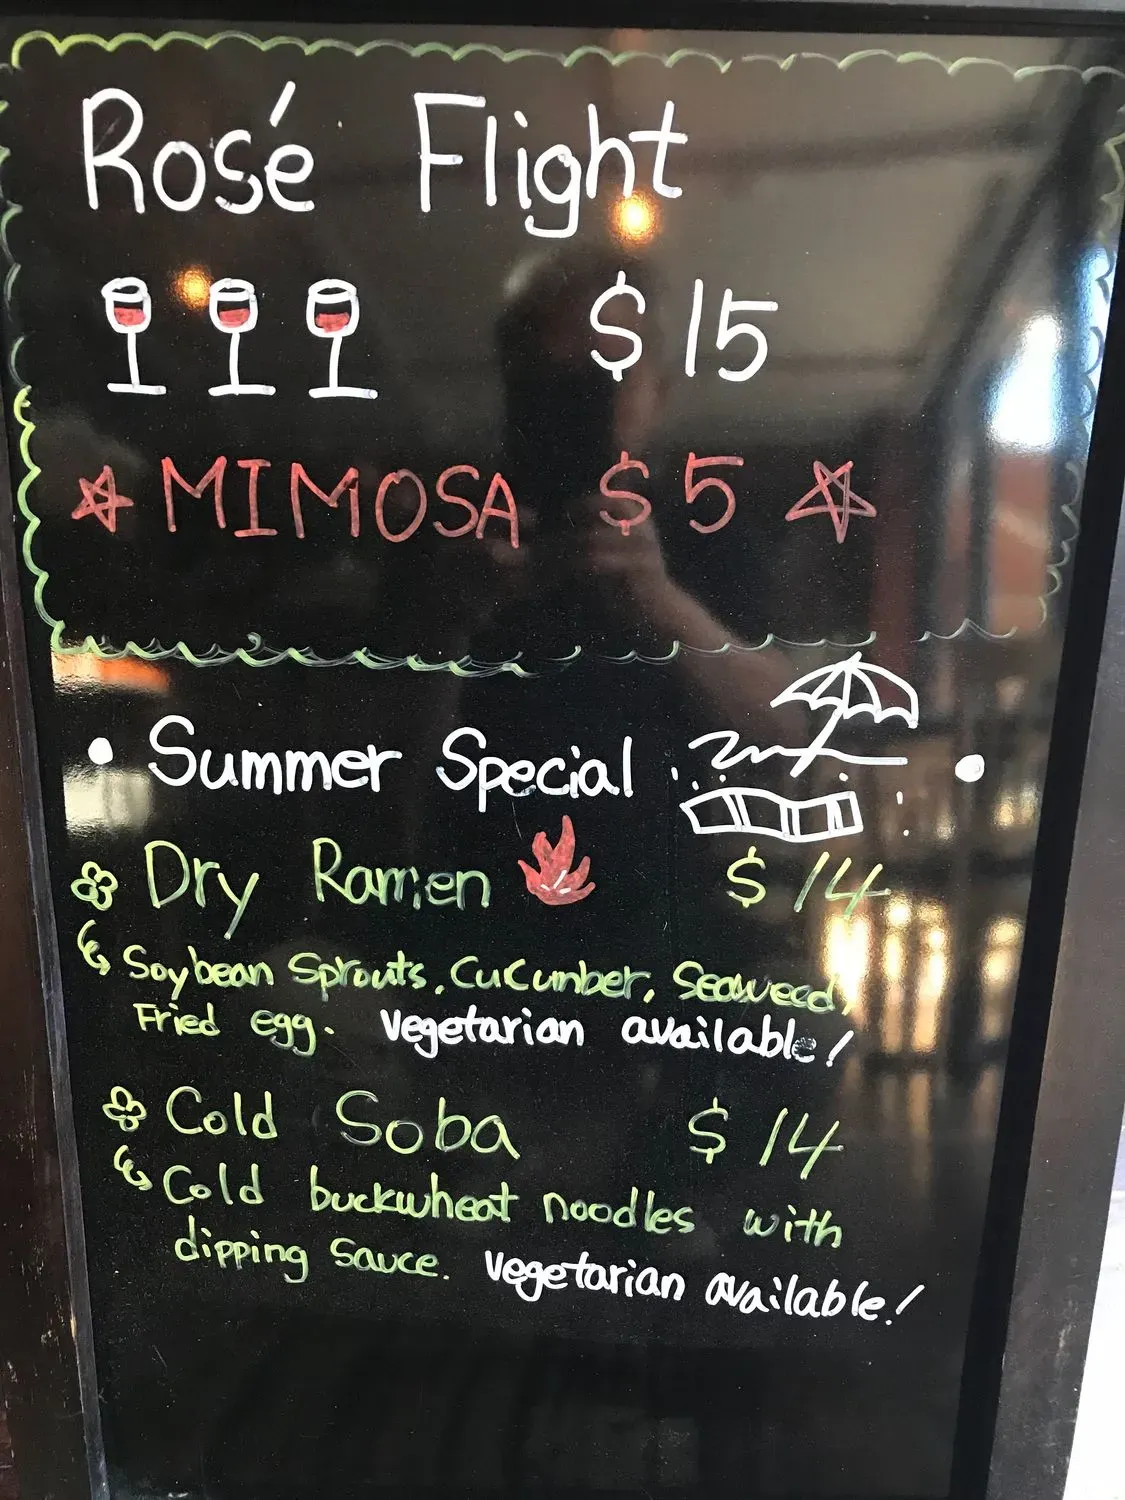 Rosé Flight
$15
MIMOSA $5
Summer Special
Dry Ramen $14
Soybean Sprouts, Cucumber, Seaweed,
Fried egg. Vegetarian available!
Cold Soba $14
Cold buckwheat noodles with
dipping sauce. Vegetarian available!